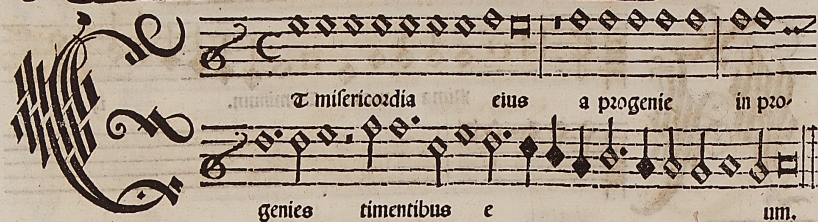 Et misericordia eius a progenie in pro-
genies timentibus e um.